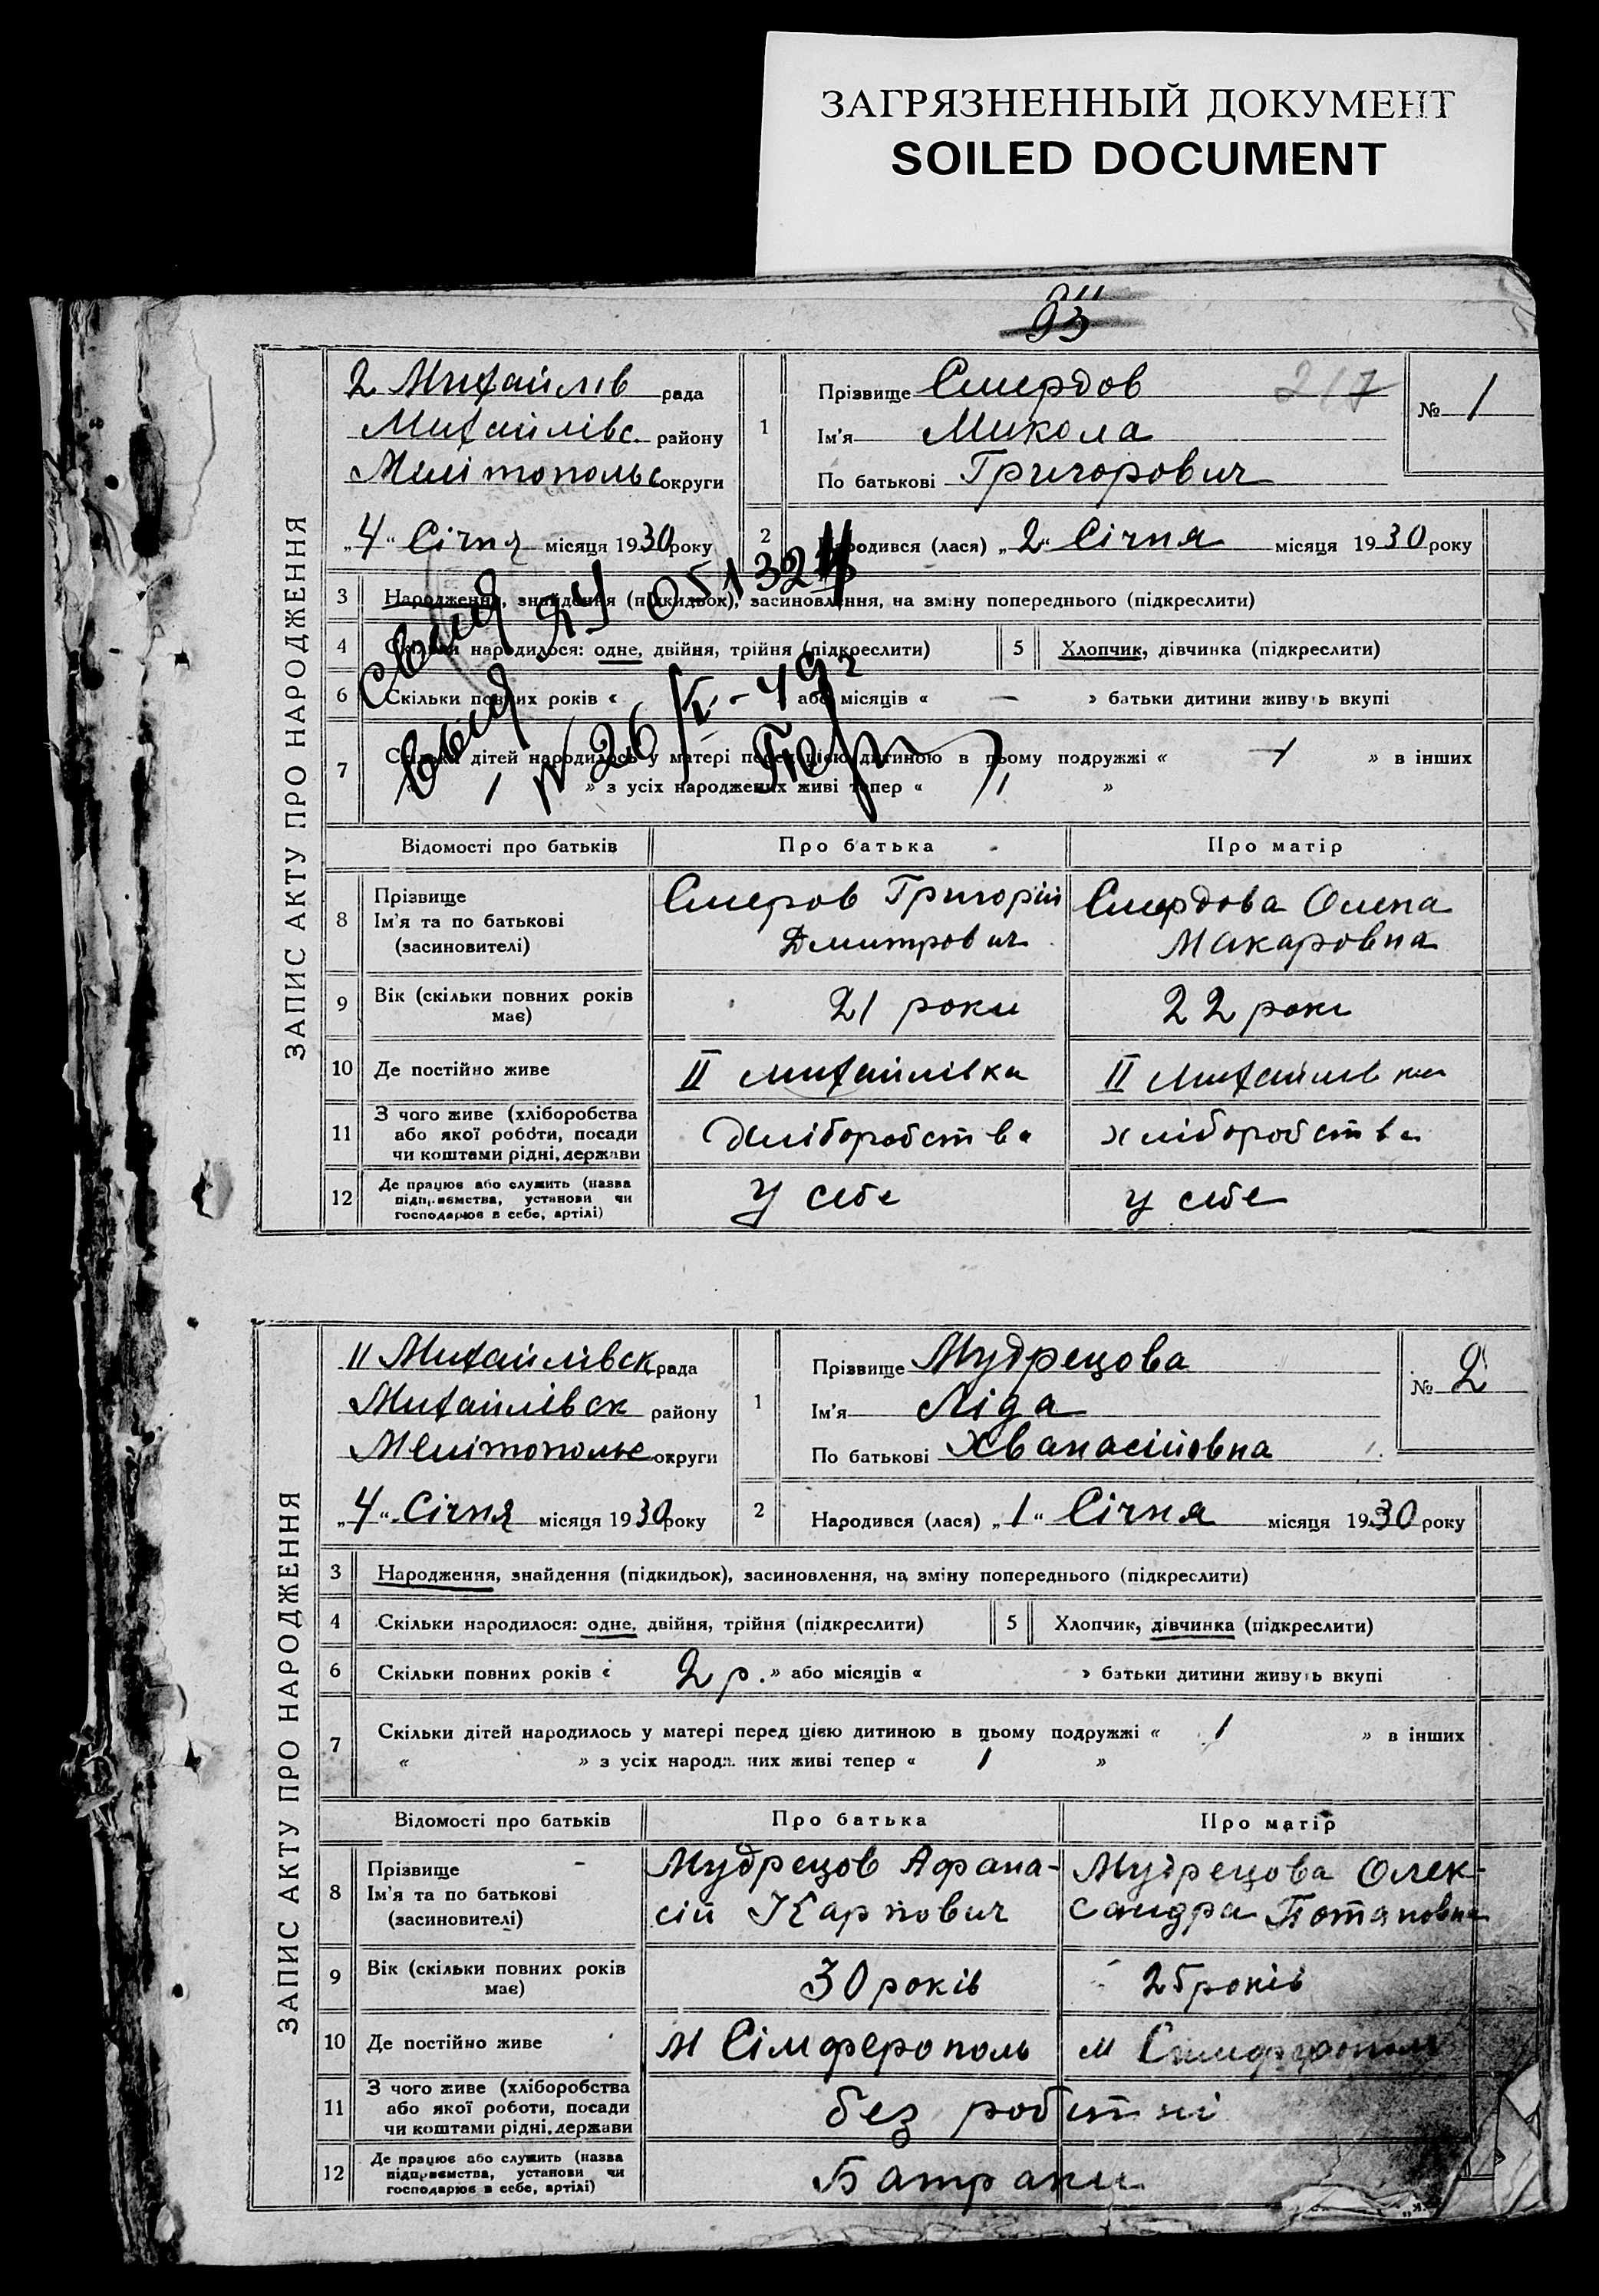 ЗАГРЯЗНЕННЫЙ ДОКУМЕНТ
SOILED DOCUMENT
93
ЗАПИС АКТУ ПРО НАРОДЖЕННЯ
2 Михайлів рада
Михайлівс. району
Мелітопольс округи
„4“ Січня місяця 1930 року
1
Прізвище Смердов 217
Ім'я Микола
По батькові Григорович
№ 1
2 Народився (лася) „2“ Січня місяця 1930 року
3 Народження, знайдення (підкидьок), засиновлення, на зміну попереднього (підкреслити)
4 Скільки народилося: одне, двійня, трійня (підкреслити) 5 Хлопчик, дівчинка (підкреслити)
6 Скільки повних років « або місяців « — » батьки дитини живуть вкупі
7 Скільки дітей народилось у матері перед цією дитиною в цьому подружжі « 1 » в інших
1 » з усіх народжених живі тепер « 1 »
051324
26
Відомості про батьків Про батька Про матір
8 Прізвище
Ім'я та по батькові
(засиновителі)
Смеров Григорій
Дмитрович
Смердова Олена
Макаровна
9 Вік (скільки повних років має) 21 роки 22 роки
10 Де постійно живе II михайлівка II михайлівка
11 З чого живе (хліборобства
або якої роботи, посади
чи коштами рідні, держави
Хліборобства хліборобства
12 Де працює або служить (назва
підприємства, установи чи
господарює в себе, артілі)
У себе у себе
ЗАПИС АКТУ ПРО НАРОДЖЕННЯ
II Михайлівск рада
Михайлівск району
Мелітопольс округи
„4“ Січня місяця 1930 року
1
Прізвище Мудрецова
Ім'я Ліда
По батькові Хванасійовна
№ 2
2 Народився (лася) „1“ Січня місяця 1930 року
3 Народження, знайдення (підкидьок), засиновлення, на зміну попереднього (підкреслити)
4 Скільки народилося: одне, двійня, трійня (підкреслити) 5 Хлопчик, дівчинка (підкреслити)
6 Скільки повних років « 2 р. » або місяців « » батьки дитини живуть вкупі
7 Скільки дітей народилось у матері перед цією дитиною в цьому подружжі « 1 » в інших
« » з усіх народж. них живі тепер « 1 »
Відомості про батьків Про батька Про матір
8 Прізвище
Ім'я та по батькові
(засиновителі)
Мудрецов Афана-
сій Карпович
Мудрецова Олек-
сандра Потаповна
9 Вік (скільки повних років має) 30 років 25 років
10 Де постійно живе м Сімферополь м Симферополь
11 З чого живе (хліборобства
або якої роботи, посади
чи коштами рідні, держави
без робітні
12 Де працює або служить (назва
підприємства, установи чи
господарює в себе, артілі)
Батраки